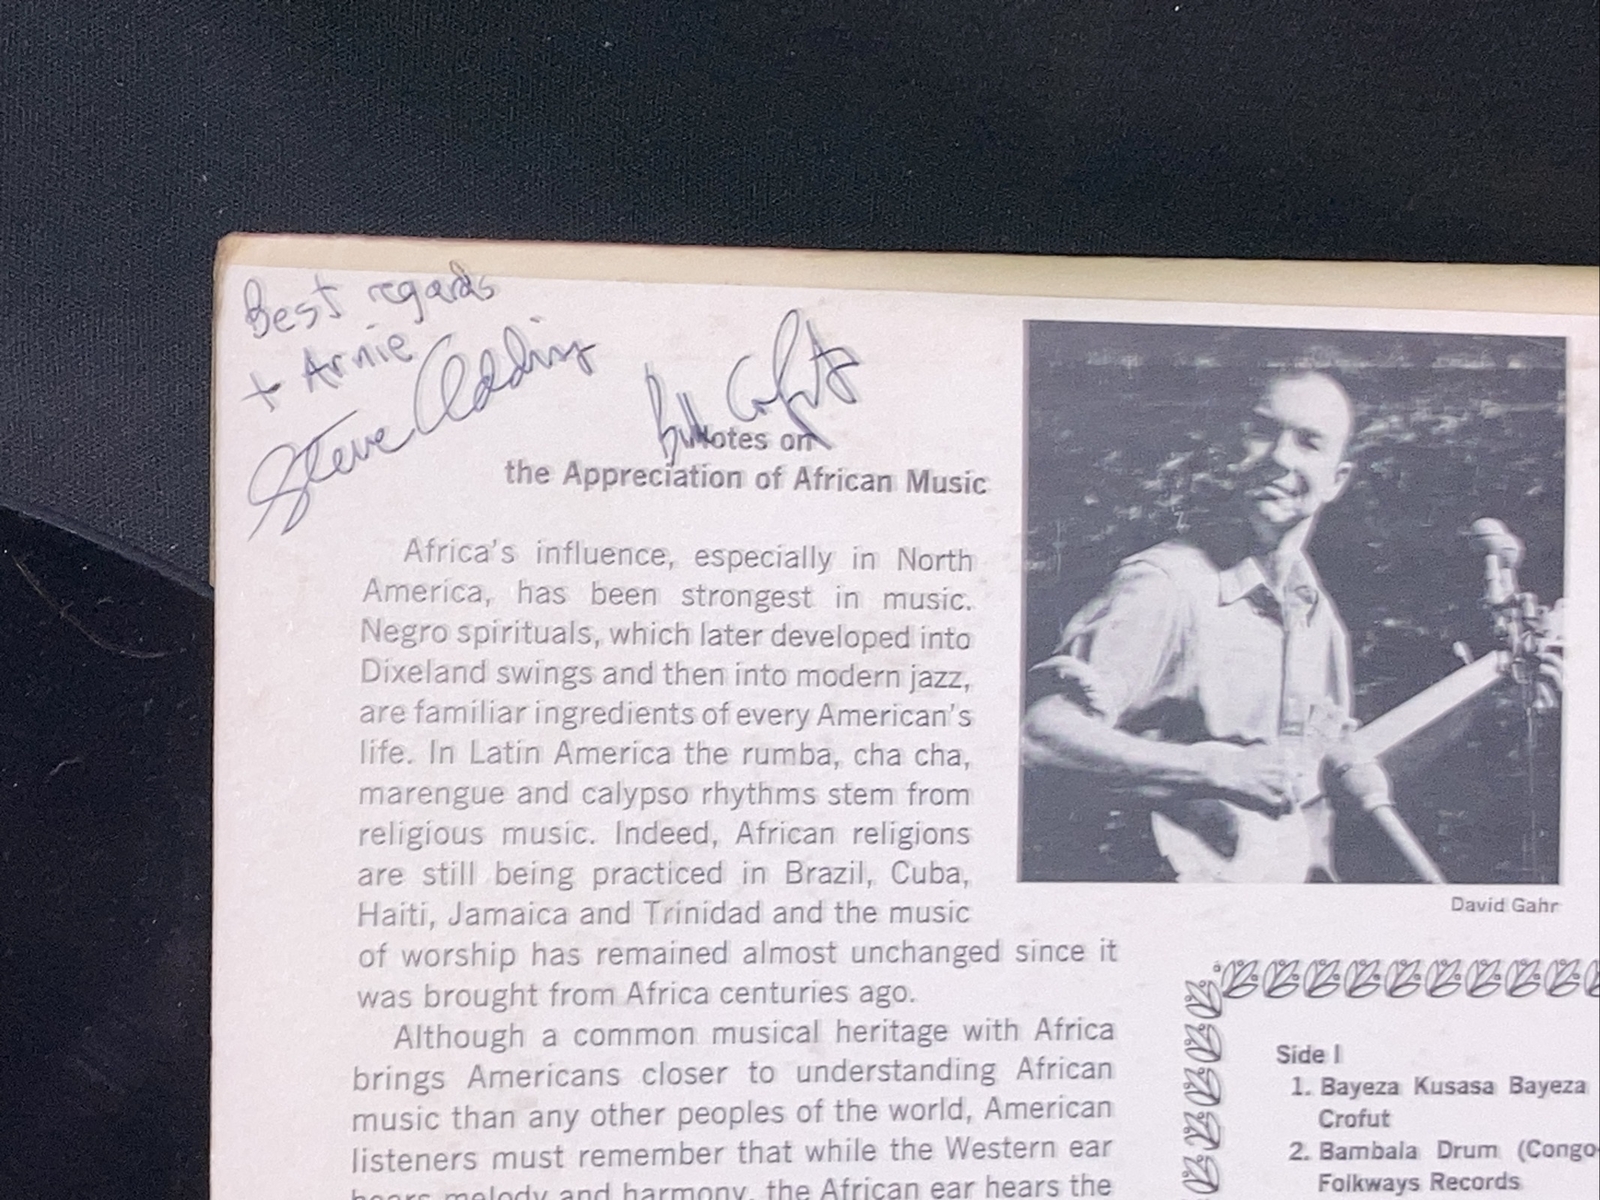 Best regards
+ Arnie
Steve Addiss
Bill Crofut
Notes on
the Appreciation of African Music
Africa's influence, especially in North
America, has been strongest in music.
Negro spirituals, which later developed into
Dixeland swings and then into modern jazz,
are familiar ingredients of every American's
life. In Latin America the rumba, cha cha,
marengue and calypso rhythms stem from
religious music. Indeed, African religions
are still being practiced in Brazil, Cuba,
Haiti, Jamaica and Trinidad and the music
of worship has remained almost unchanged since it
was brought from Africa centuries ago.
Although a common musical heritage with Africa
brings Americans closer to understanding African
music than any other peoples of the world, American
listeners must remember that while the Western ear
hears melody and harmony, the African ear hears the
David Gahr
Side I
1. Bayeza Kusasa Bayeza
Crofut
2. Bambala Drum (Congo-
Folkways Records